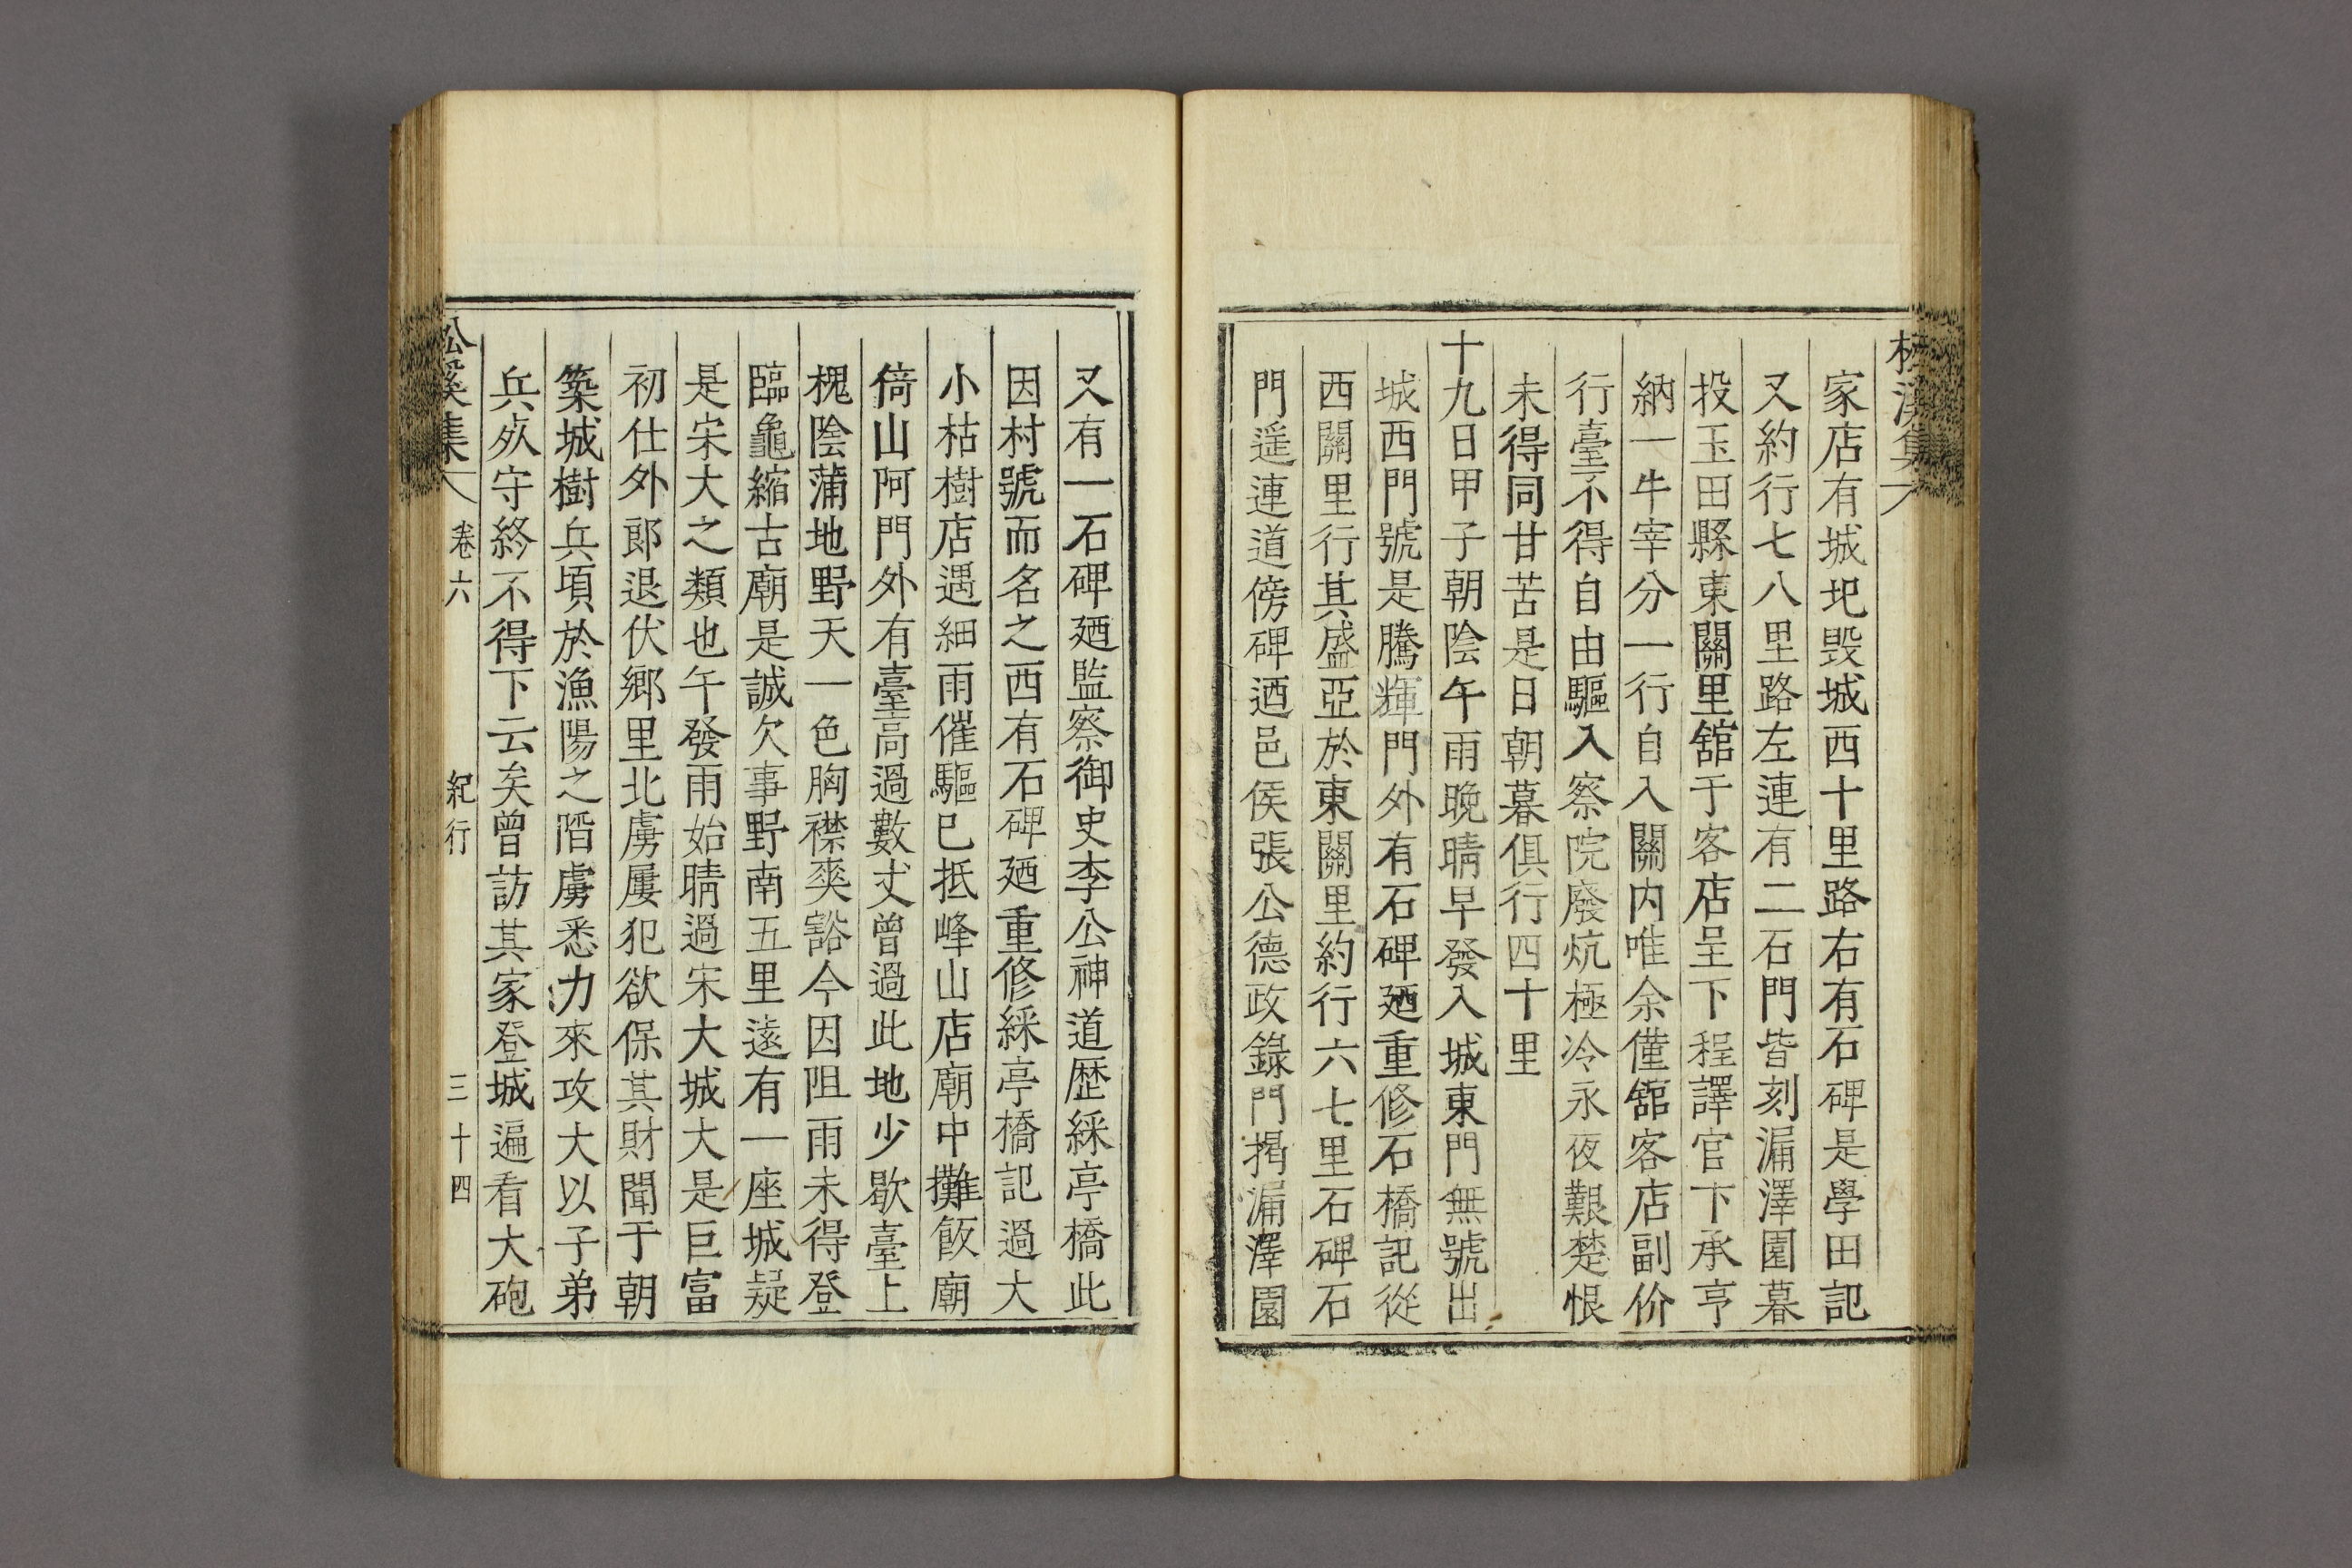 家店有城圯毁城西十里路右有石碑是學田記
又約行七八里路左連有二石門皆刻漏澤園暮
投玉田縣東關里舘于客店呈下程譯官下承亨
納一牛宰分一行自入關内唯余僅舘客店副价
行臺不得自由驅入察院廢炕極冷永夜艱楚恨
未得同甘苦是日朝暮俱行四十里
十九日甲子朝陰午雨晚晴早發入城東門無號出
城西門號是騰輝門外有石碑廼重修石橋記從
西關里行其盛亞於東關里約行六七里石碑石
門遥連道傍碑迺邑侯張公德政錄門揭漏澤園
又有一石碑廼監察御史李公神道歴綵亭橋此
因村號而名之西有石碑廼重修綵亭橋記過大
小枯樹店遇細雨催驅已抵峰山店廟中攤飯廟
倚山阿門外有臺高過數丈曾過此地少歇臺上
槐陰蒲地野天一色胸襟爽豁今因阻雨未得登
臨龜縮古廟是誠欠事野南五里遠有一座城疑
是宋大之類也午發雨始晴過宋大城大是巨富
初仕外郎退伏鄉里北虜屢犯欲保其財聞于朝
築城樹兵頃於漁陽之階虜悉力來攻大以子弟
兵死守終不得下云矣曾訪其家登城遍看大砲
溪集 卷六 紀行 三十四